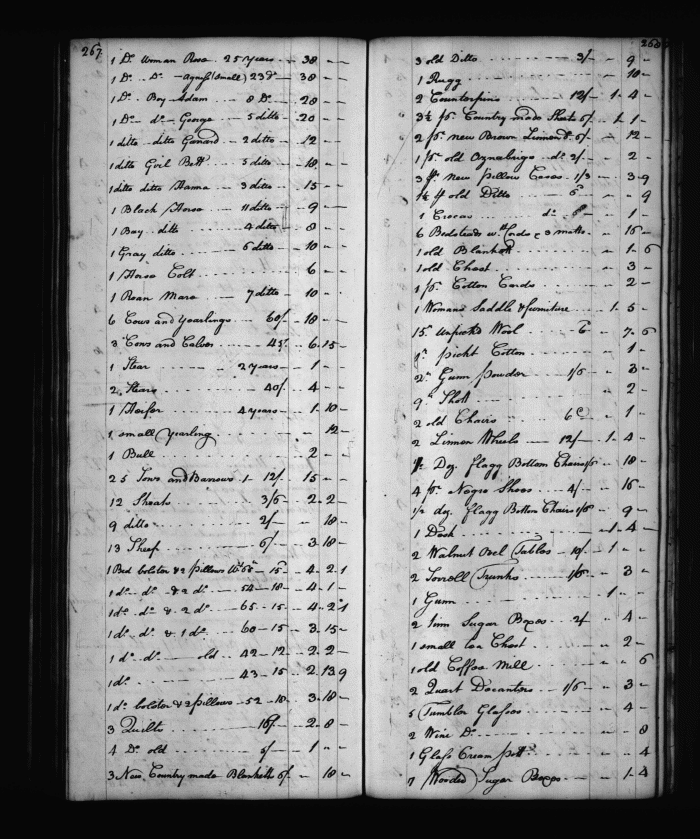 267
1 Do. Woman Rose 25 years 38 - -
1 Do. Do. - Agness (small) 23 do 38 - -
1 Do. Boy Adam 8 Do. 28 - -
1 Do. do. George 5 ditto 20 - -
1 ditto ditto 2 ditto 12 - -
1 ditto Girl Bett 5 ditto 18 - -
1 ditto ditto Hanna 3 ditto 15 - -
1 Black Horse 11 ditto 9 - -
1 Bay ditto 4 ditto 8 - -
1 Gray ditto 6 ditto 10 - -
1 Horse Colt 6 - -
1 Roan Mare 7 ditto 10 - -
6 Cows and yearlings 60/ 18 - -
3 Cows and Calves 45/ 6 15 -
1 Stear 2 years 1 - -
2 Stears 40/ 4 - -
1 Heifer 4 years 1 10 -
1 small yearling - 12 -
1 Bull 2 - -
25 Sows and Barrows 12/ 15 - -
12 Shoats 3/6 2 2 -
9 ditto 2/ - 18 -
13 Sheep 6/ 3 18 -
1 Bed bolster & 2 pillows 15 4 2 1
1 do. do. & 2 do. 54 - 18 4 1 -
1 do. do. & 2 do. 65 - 15 4 2
1 do. do. & 1 do. 60 - 15 3 15 -
1 do. do. old 42 - 12 2 2 -
1 do. 43 - 15 2 13 9
1 do. bolster & 2 pillows 52 - 18 3 18 -
3 Quilts 16/ 2 8 -
4 Do. old 5/ 1 - -
3 New Country made Blanketts 6/ - 18 -
268
3 old Ditto 3/ - 9 -
1 Rugg - 10 -
2 Counterpins 12/ 1 4 -
3 1/2 pr. Country made Sheets 6/ 1 1 -
2 pr. new Brown Linnen do. 6/ - 12 -
1 pr. old Oznabrigs do. 2/ - 2 -
3 pr. New pillow Cases 1/3 - 3 9
1 1/2 pr old Ditto 6d - - 9
1 do. - 1 -
6 Bedsteads wth. Cords & 3 matts - 15 -
1 old Blankett - 1 6
1 old Chest - 3 -
1 pr. Cotton Cards - 2 -
1 Womans Saddle & furniture 1 5 -
15 unpickt Wool 6 - 7 6
pickt Cotton - 1 -
2 Gunn powder 1/6 - 3 -
9 Shott - 2 -
2 old Chairs 6d - 1 -
2 Linnen Wheels 12/ 1 4 -
Doz. flagg Bottom Chairs - 18 -
4 pr. Negro Shoes 4/ - 16 -
1/2 doz. flagg Bottom Chairs 1/6 - 9 -
1 Desk 1 4 -
2 Walnut Oval Tables 10/ 1 - -
2 Sorrell Trunks 1/6 - 3 -
1 Gunn 1 - -
2 tinn Sugar Boxes 2/ - 4 -
1 small tea Chest - 2 -
1 old Coffee Mill - - 6
2 Quart Decanters 1/6 - 3 -
5 Tumbler Glasses - 4 -
2 Wine Do. - - 8
1 Glass Cream pott - - 4
7 Wooden Sugar Boxes - 1 4